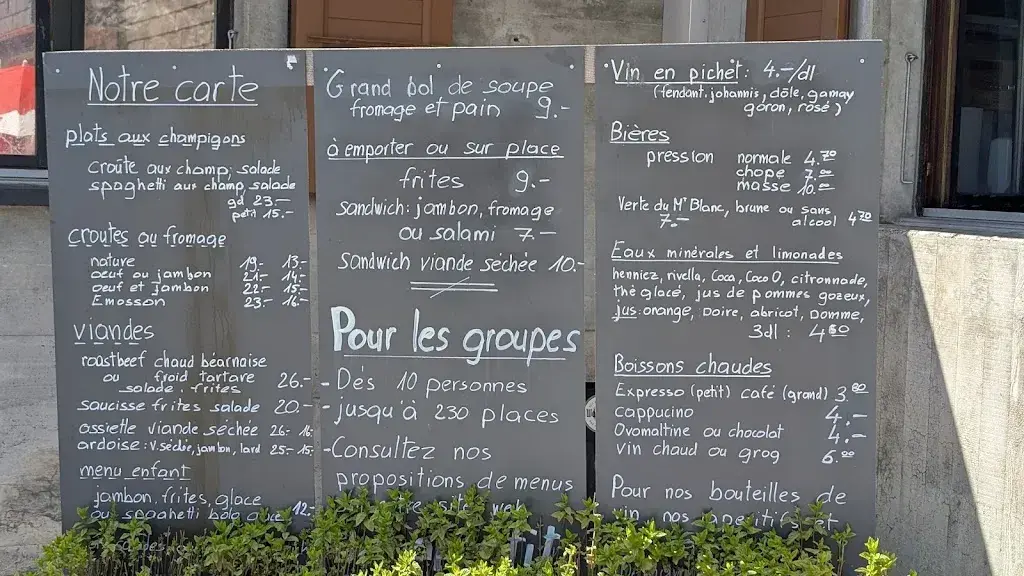 Notre carte
plats aux champigons
croûte aux champ, salade
spaghetti aux champ, salade
gd 23.-
petit 15.-
croutes au fromage
nature 19.- 13.-
oeuf ou jambon 21.- 14.-
oeuf et jambon 22.- 15.-
Emosson 23.- 16.-
viandes
roastbeef chaud béarnaise
ou froid tartare
salade, frites 26.-
saucisse frites salade 20.-
assiette viande séchée 26.- 16.-
ardoise: v.séché, jambon, lard 25.- 15.-
menu enfant
jambon, frites, glace
ou spaghetti bolo glace 12.-
Grand bol de soupe
fromage et pain 9.-
à emporter ou sur place
frites 9.-
sandwich: jambon, fromage
ou salami 7.-
Sandwich viande séchée 10.-
Pour les groupes
- Dés 10 personnes
- jusqu'à 230 places
- Consultez nos
propositions de menus
site web
Vin en pichet: 4.-/dl
(fendant, johannis, dôle, gamay
goron, rosé)
Bières
pression normale 4.70
chope 7.00
masse 10.00
Verte du Mt Blanc, brune ou sans
7.- alcool 470
Eaux minérales et limonades
henniez, rivella, Coca, Coca O, citronnade,
thé glacé, jus de pommes gazeux,
jus: orange, poire, abricot, pomme,
3dl: 4.60
Boissons chaudes
Expresso (petit) café (grand) 3.80
cappucino 4.-
Ovomaltine ou chocolat 4.-
vin chaud ou grog 6.00
Pour nos bouteilles de
vin nos apéritifs et